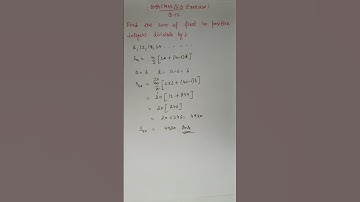 10th Class (5.3 Exercise)
Q-12
Find the sum of first 40 positive
integers divisible by 6
6, 12, 18, 24 . . . . . .
Sn = n/2 [2a + (n-1)d]
a = 6 d = 12-6 = 6
S40 = 40/2 [2×6 + (40-1)6]
= 20 [12 + 234]
= 20 [246]
= 20 × 246 = 4920
S40 = 4920 Ans